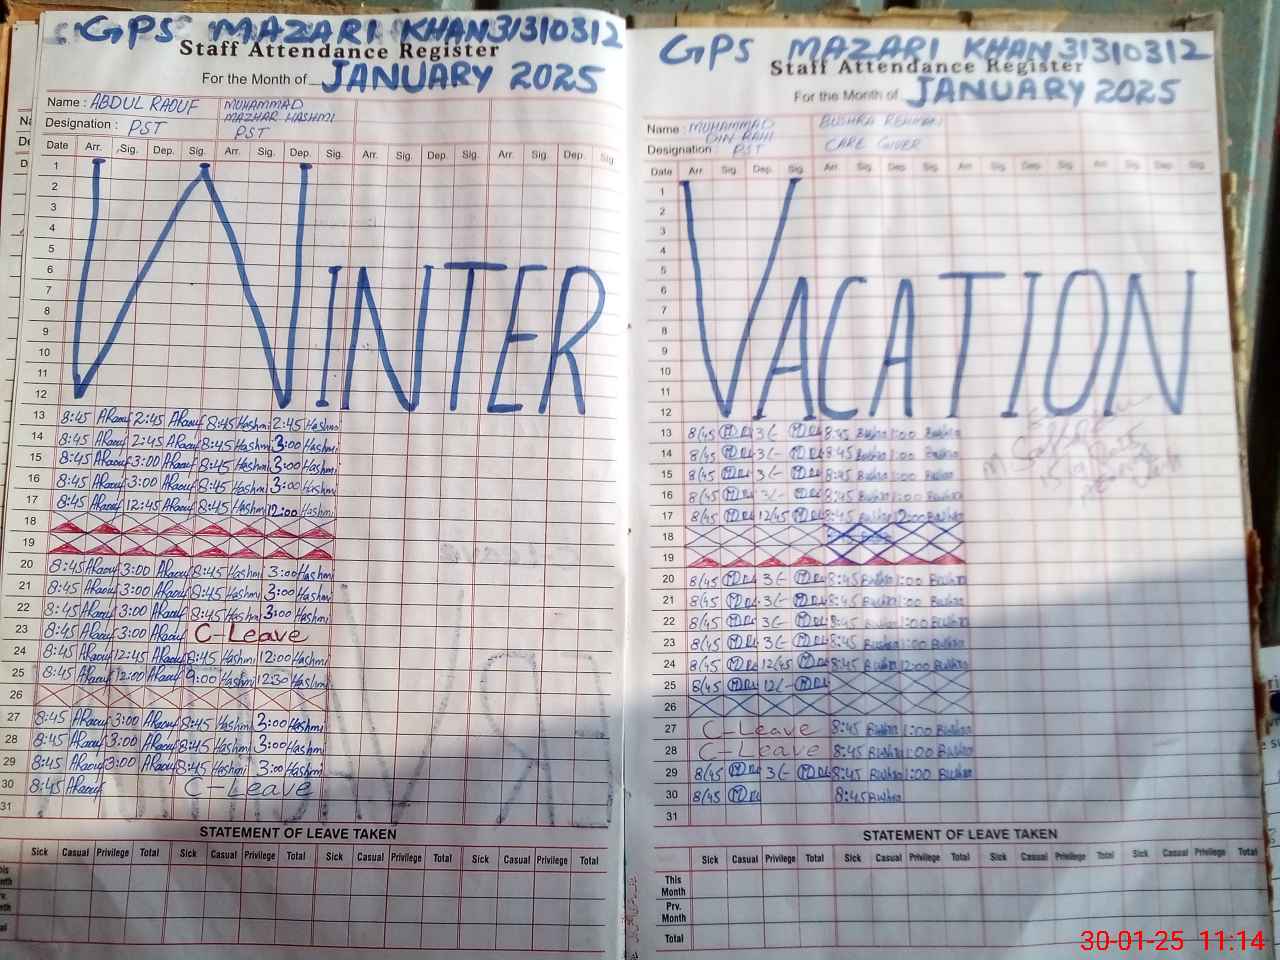 GPS MAZARI KHAN 31310312
Staff Attendance Register
For the Month of JANUARY 2025
Name : ABDUL RAOUF MUHAMMAD MAZHAR HASHMI
Designation : PST PST
Date Arr. Sig. Dep. Sig. Arr. Sig. Dep. Sig. Arr. Sig. Dep. Sig. Arr. Sig. Dep. Sig.
1
2
3
4
5
6
7
8
9
10
11
12
WINTER
13 8:45 ARaouf 2:45 ARaouf 8:45 Hashmi 2:45 Hashmi
14 8:45 ARaouf 2:45 ARaouf 8:45 Hashmi 3:00 Hashmi
15 8:45 ARaouf 3:00 ARaouf 8:45 Hashmi 3:00 Hashmi
16 8:45 ARaouf 3:00 ARaouf 8:45 Hashmi 3:00 Hashmi
17 8:45 ARaouf 12:45 ARaouf 8:45 Hashmi 12:00 Hashmi
18
19
20 8:45 ARaouf 3:00 ARaouf 8:45 Hashmi 3:00 Hashmi
21 8:45 ARaouf 3:00 ARaouf 8:45 Hashmi 3:00 Hashmi
22 8:45 ARaouf 3:00 ARaouf 8:45 Hashmi 3:00 Hashmi
23 8:45 ARaouf 3:00 ARaouf C-Leave
24 8:45 ARaouf 12:45 ARaouf 8:45 Hashmi 12:00 Hashmi
25 8:45 ARaouf 12:00 ARaouf 9:00 Hashmi 12:30 Hashmi
26
27 8:45 ARaouf 3:00 ARaouf 8:45 Hashmi 3:00 Hashmi
28 8:45 ARaouf 3:00 ARaouf 8:45 Hashmi 3:00 Hashmi
29 8:45 ARaouf 3:00 ARaouf 8:45 Hashmi 3:00 Hashmi
30 8:45 ARaouf C-Leave
31
STATEMENT OF LEAVE TAKEN
Sick Casual Privilege Total Sick Casual Privilege Total Sick Casual Privilege Total Sick Casual Privilege Total
GPS MAZARI KHAN 31310312
Staff Attendance Register
For the Month of JANUARY 2025
Name : MUHAMMAD DIN BUSHRA REHMAN
Designation : PST CARE GIVER
Date Arr. Sig. Dep. Sig. Arr. Sig. Dep. Sig. Arr Sig. Dep. Sig. Arr Sig. Dep. Sig.
1
2
3
4
5
6
7
8
9
10
11
12
VACATION
13 8/45 3/- 8:45 Bushra 1:00 Bushra
14 8/45 3/- 8:45 Bushra 1:00 Bushra
15 8/45 3/- 8:45 Bushra 1:00 Bushra
16 8/45 3/- 8:45 Bushra 1:00 Bushra
17 8/45 12/45 8:45 Bushra 12:00 Bushra
18
19
20 8/45 3/- 8:45 Bushra 1:00 Bushra
21 8/45 3/- 8:45 Bushra 1:00 Bushra
22 8/45 3/- 8:45 Bushra 1:00 Bushra
23 8/45 3/- 8:45 Bushra 1:00 Bushra
24 8/45 12/45 8:45 Bushra 12:00 Bushra
25 8/45 12/-
26
27 C-Leave 8:45 Bushra 1:00 Bushra
28 C-Leave 8:45 Bushra 1:00 Bushra
29 8/45 3/- 8:45 Bushra 1:00 Bushra
30 8/45 8:45 Bushra
31
STATEMENT OF LEAVE TAKEN
Sick Casual Privilege Total Sick Casual Privilege Total Sick Casual Privilege Total Sick Casual Privilege Total
This Month
Prv. Month
Total
30-01-25 11:14